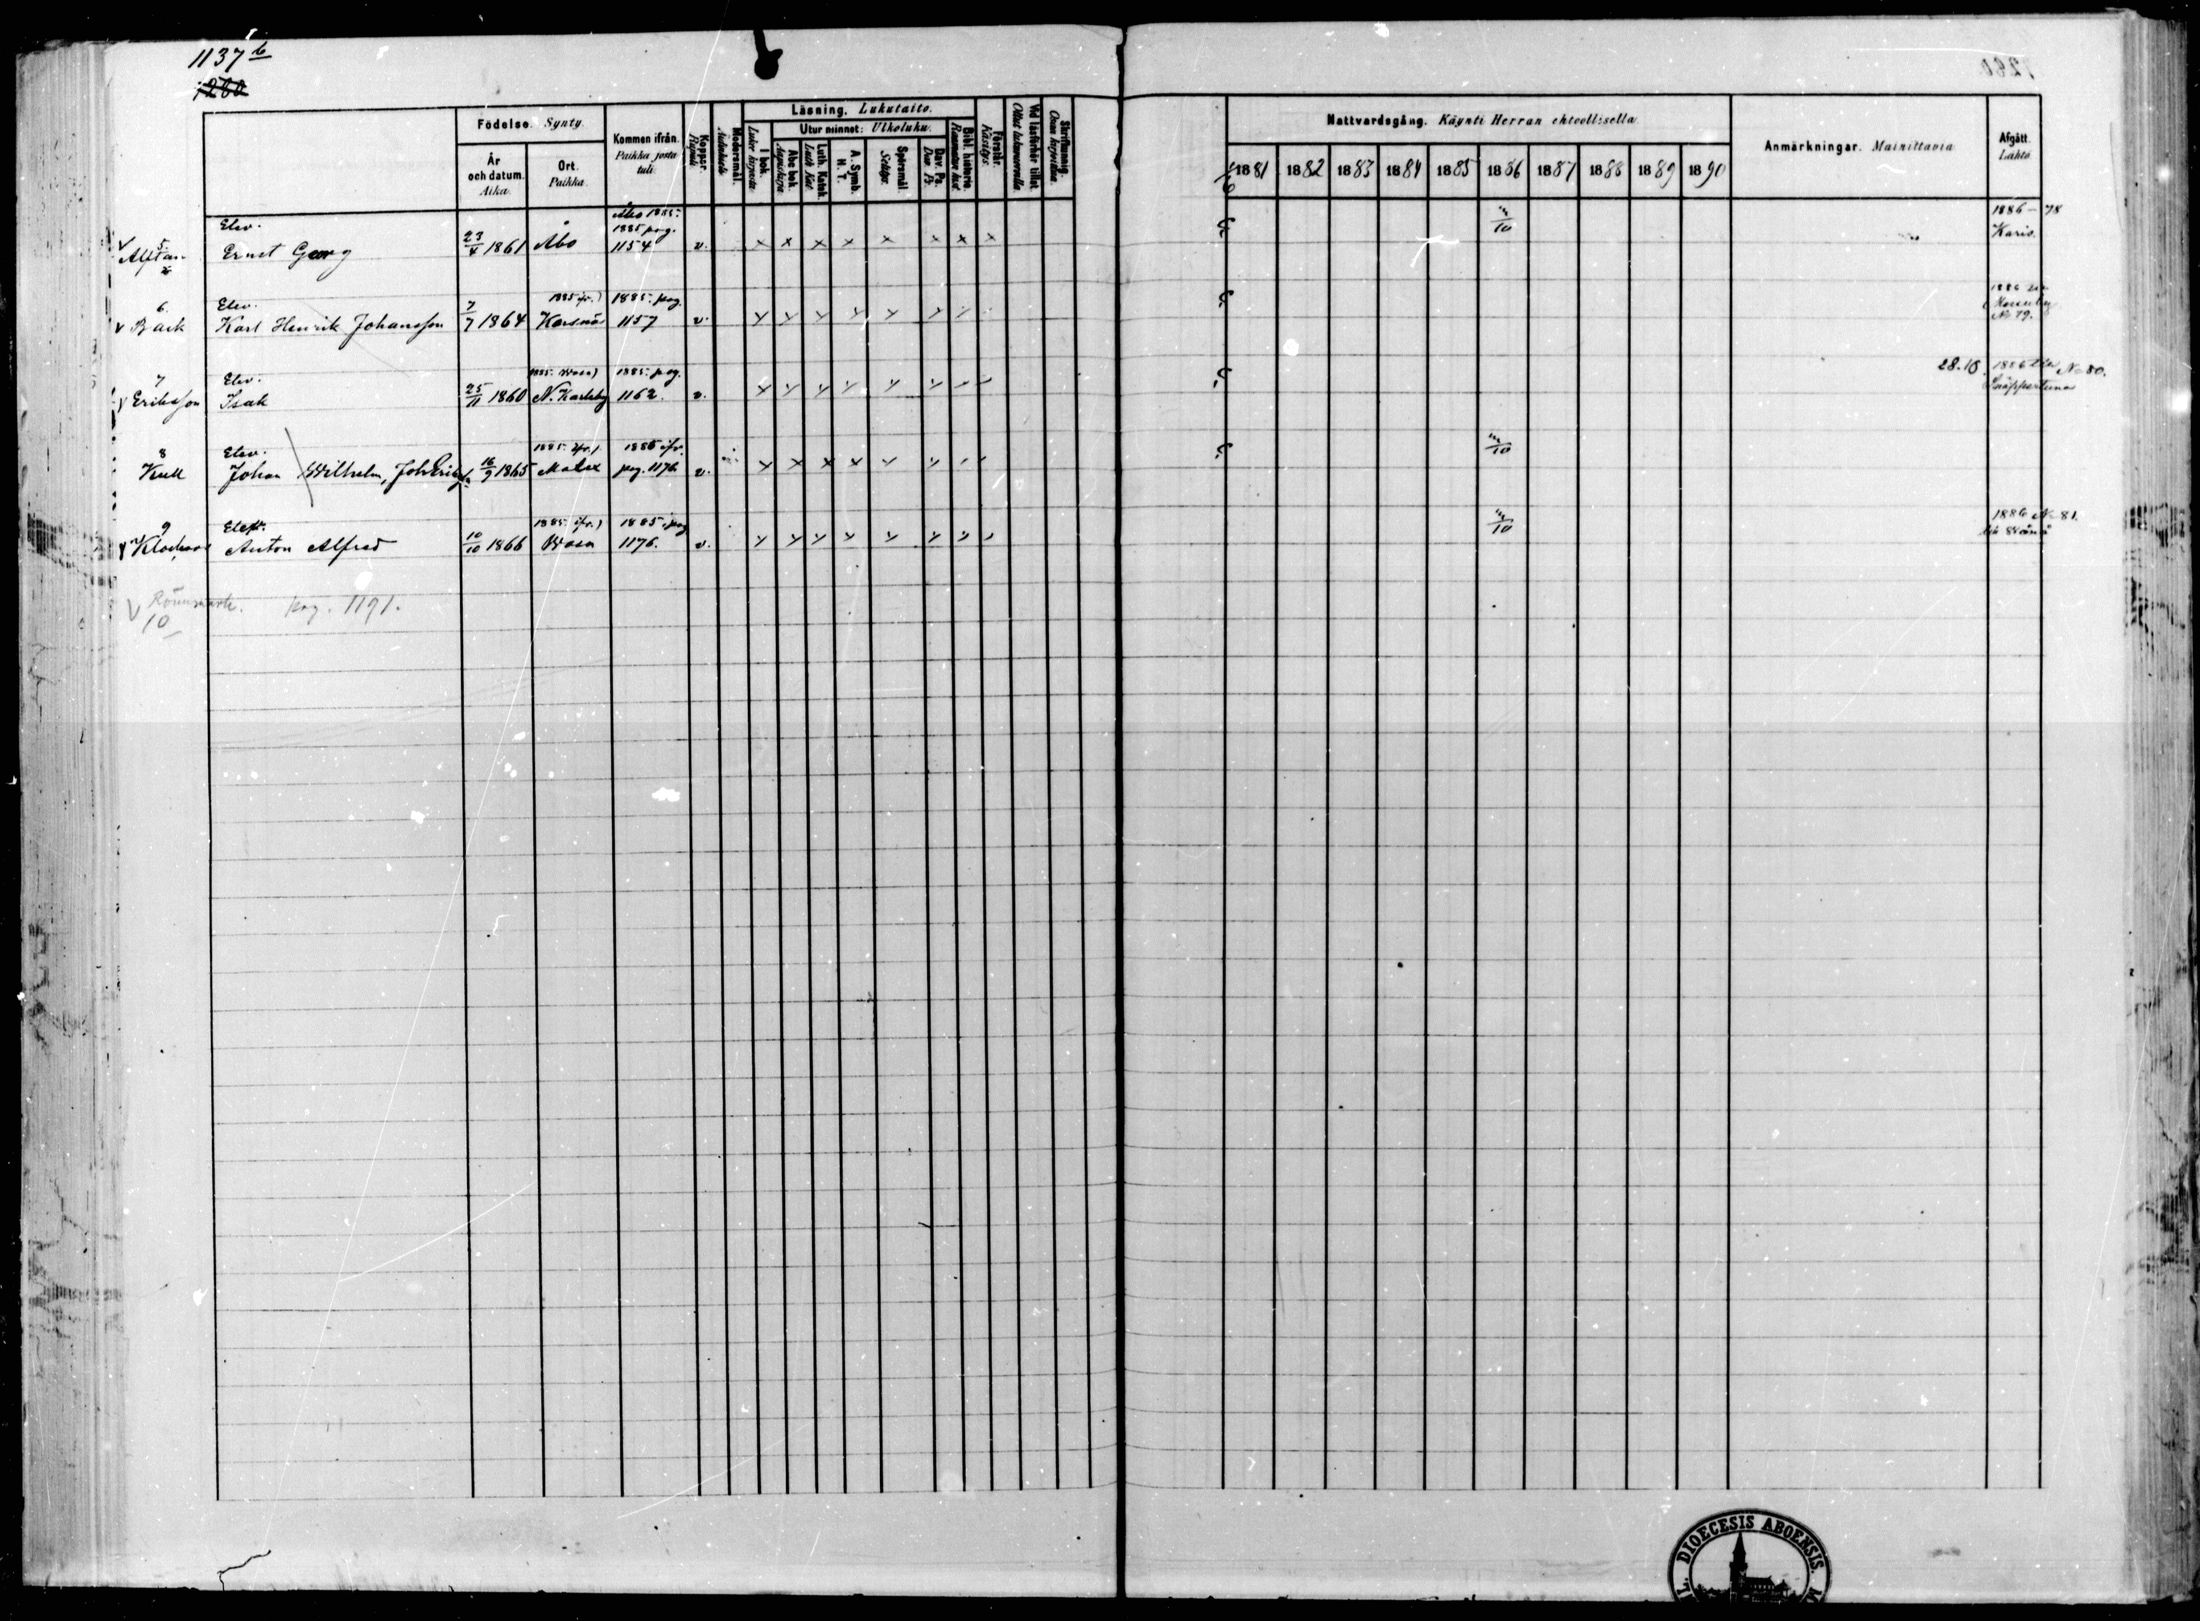 1137 b
1260
Födelse. Synty.
År och datum. Aika.
Ort. Paikka.
Kommen ifrån. Paikka josta tuli.
Koppor. Rupuli.
Modersmål. Äidinkieli.
Läsning. Lukutaito.
I bok. Luku kirjasta.
Utur minnet: Ulkoluku.
Abc bok. Aapiskirja.
Luth. Katek. Luth. Kat.
A. Symb. H. T.
Spörsmål. Selitys.
Dav. Ps. Dav. Ps.
Bibl. historie. Raamatun hist.
Förstår. Käsitys.
Vid läsförhör tillst. Ollut lukukunnalla.
Skriftkunnig. Osaa kirjoittaa.
Nattvardsgång. Käynti Herran ehtoollisella.
1881 1882 1883 1884 1885 1886 1887 1888 1889 1890
Anmärkningar. Mainittavia
Afgått. Lähtö.
5 Alftan Elev. Ernst Georg 23/4 1861 Åbo Åbo 1885. 1885 pag. 1154 v. × × × × × × × × 10 1886 — 78 Karis.
6. Back Elev. Karl Henrik Johansson 7/7 1864 1885 ifr. Korsnäs 1885. pag. 1157 v. 1886 No 79.
7 Eriksson Elev. Isak 25/11 1860 1885. Wasa N. Karleby 1885. pag. 1162. v. 28.10. 1886 No 80. Snäppertuna
8 Kull Elev. Johan Wilhelm, 16/9 1865 1885. ifr. Malax 1885 ifr. pag. 1176. v. 10
9 Elev. Anton Alfred 10/10 1866 1885. ifr. Wasa 1885. pag 1176. v. 10 1886 No 81.
10 pag. 1191.
DIOECESIS ABOENSIS